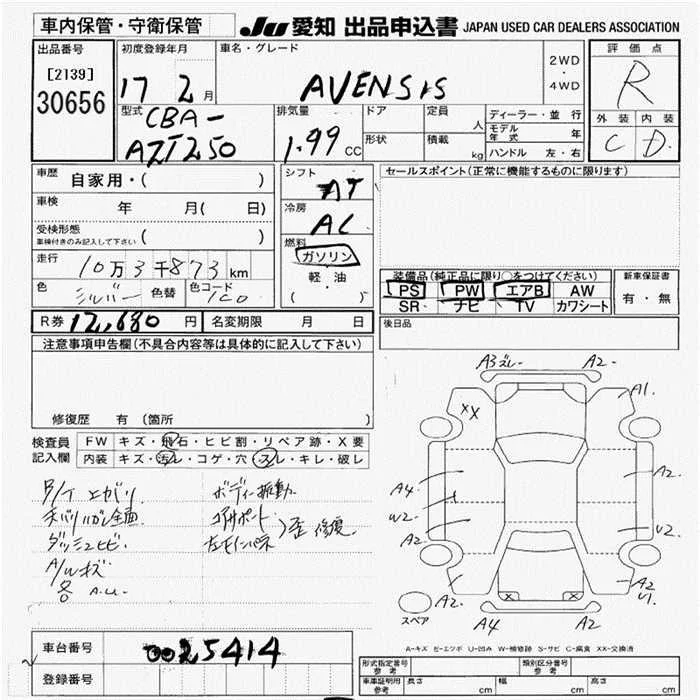 車内保管・守衛保管
JU 愛知 出品申込書 JAPAN USED CAR DEALERS ASSOCIATION
出品番号
[2139]
30656
初度登録年月
17 2 月
車名・グレード
AVENSIS
2WD
・
4WD
評価点
R
外装 内装
C D
型式
CBA-
AZT250
排気量
1.99 CC
ドア
形状
定員 人
積載 kg
ディーラー・並行
モデル年式 年
ハンドル 左・右
車歴
自家用・( )
車検 年 月( 日)
受検形態
車検付きのみ記入して下さい ( )
走行
10万3千873 km
色 シルバー 色替 色コード 1C0
シフト
AT
冷房
AC
燃料
ガソリン
軽・油
( )
セールスポイント(正常に機能するものに限ります)
装備品(純正品に限り○をつけてください)
PS PW エアB AW
SR ナビ TV カワシート
新車保証書
有・無
R券 12,680 円 名変期限 月 日
後日品
注意事項申告欄(不具合内容等は具体的に記入して下さい)
修復歴 有 (箇所 )
検査員
記入欄
FW キズ・飛石・ヒビ割・リペア跡・X要
内装 キズ・汚レ・コゲ・穴・スレ・キレ・破レ
ボディー振動
コアサポート
歪 修復
ダッシュヒビ
A/Wキズ
各 A.U.
A3ズレ A2
A1
XX
A4
W2
A2
A2
U2
A2
A2
U1
A2
A4
A2
スペア
A-キズ E-エクボ U-凹み W-補修跡 S-サビ C-腐食 XX-交換済
車台番号 0025414
登録番号
形式指定番号 参考
類別区分番号 参考
車庫証明用 参考 長さ cm 幅 cm 高さ cm